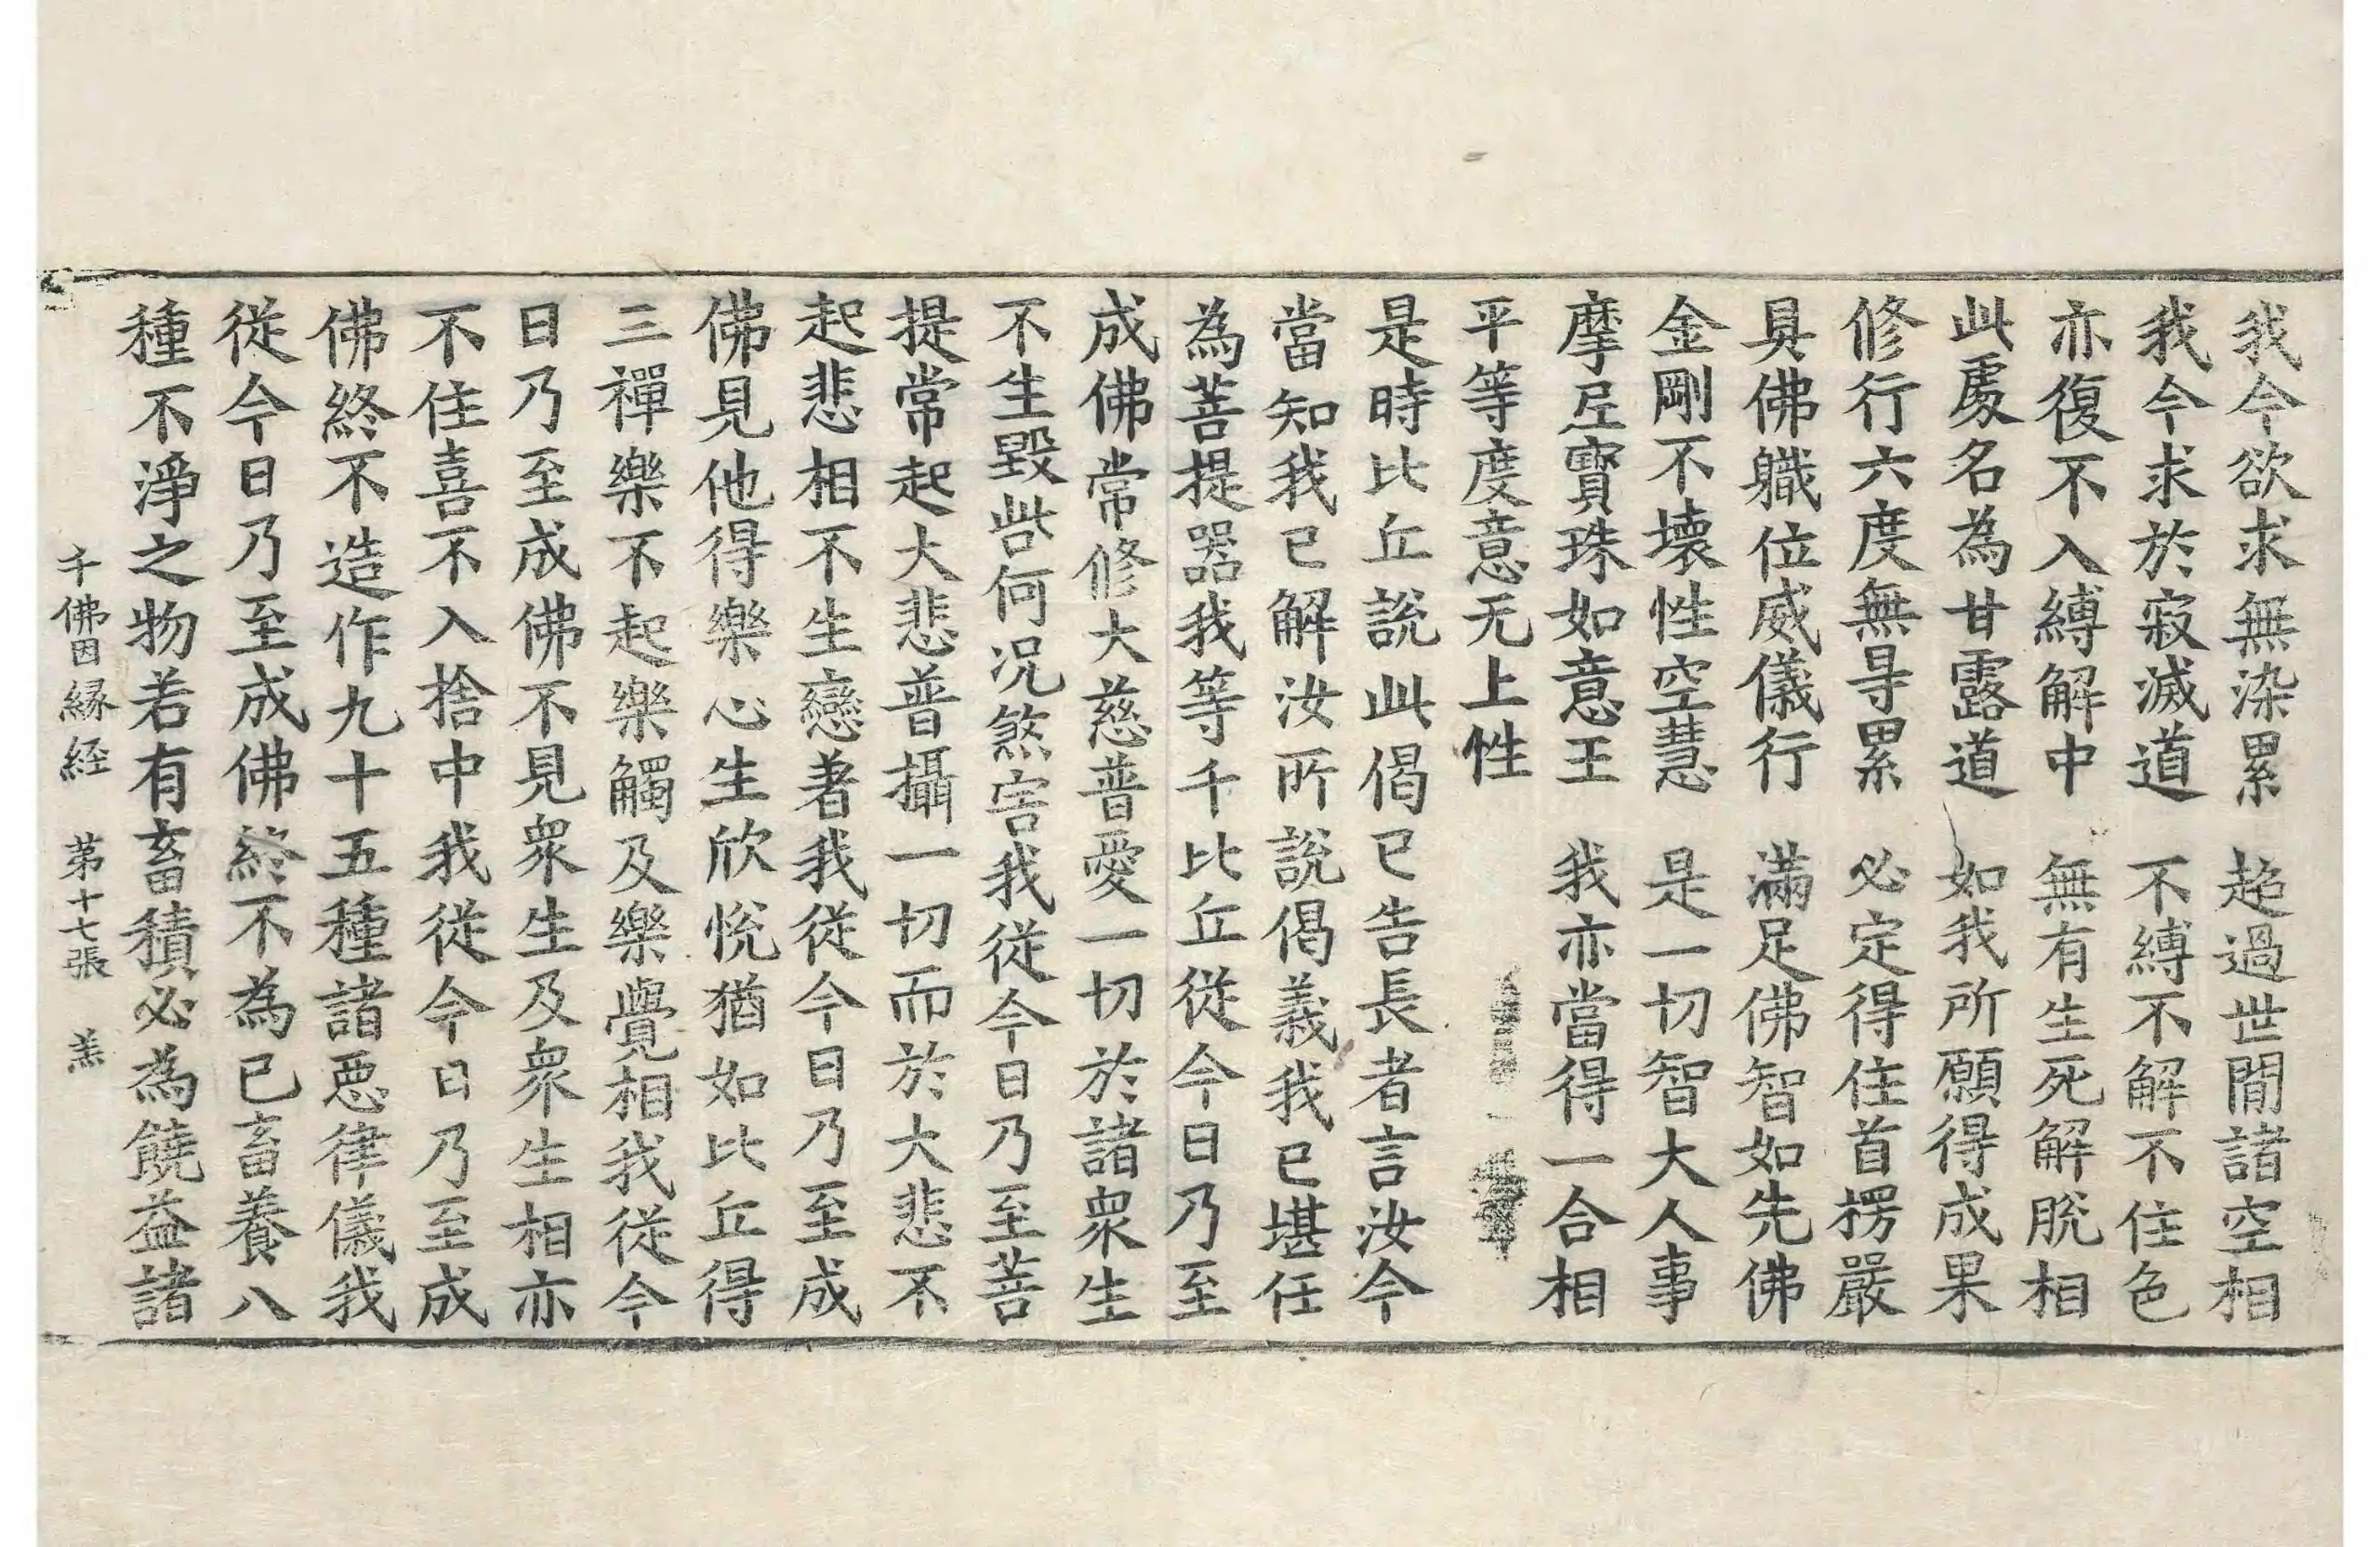 我今欲求無染累　超過世間諸空相
我今求於寂滅道　不縛不解不住色
亦復不入縛解中　無有生死解脫相
此處名為甘露道　如我所願得成果
修行六度無㝵累　必定得住首楞嚴
具佛職位威儀行　滿足佛智如先佛
金剛不壞性空慧　是一切智大人事
摩尼寶珠如意王　我亦當得一合相
平等度意无上性
是時比丘說此偈已告長者言汝今
當知我已解汝所說偈義我已堪任
為菩提器我等千比丘從今日乃至
成佛常修大慈普愛一切於諸衆生
不生毀呰何況煞害我從今日乃至菩
提常起大悲普攝一切而於大悲不
起悲相不生戀著我從今日乃至成
佛見他得樂心生欣悅猶如比丘得
三禪樂不起樂觸及樂覺相我從今
日乃至成佛不見衆生及衆生相亦
不住喜不入捨中我從今日乃至成
佛終不造作九十五種諸惡律儀我
從今日乃至成佛終不為己畜養八
種不淨之物若有畜積必為饒益諸
千佛因緣経　苐十七張　羔